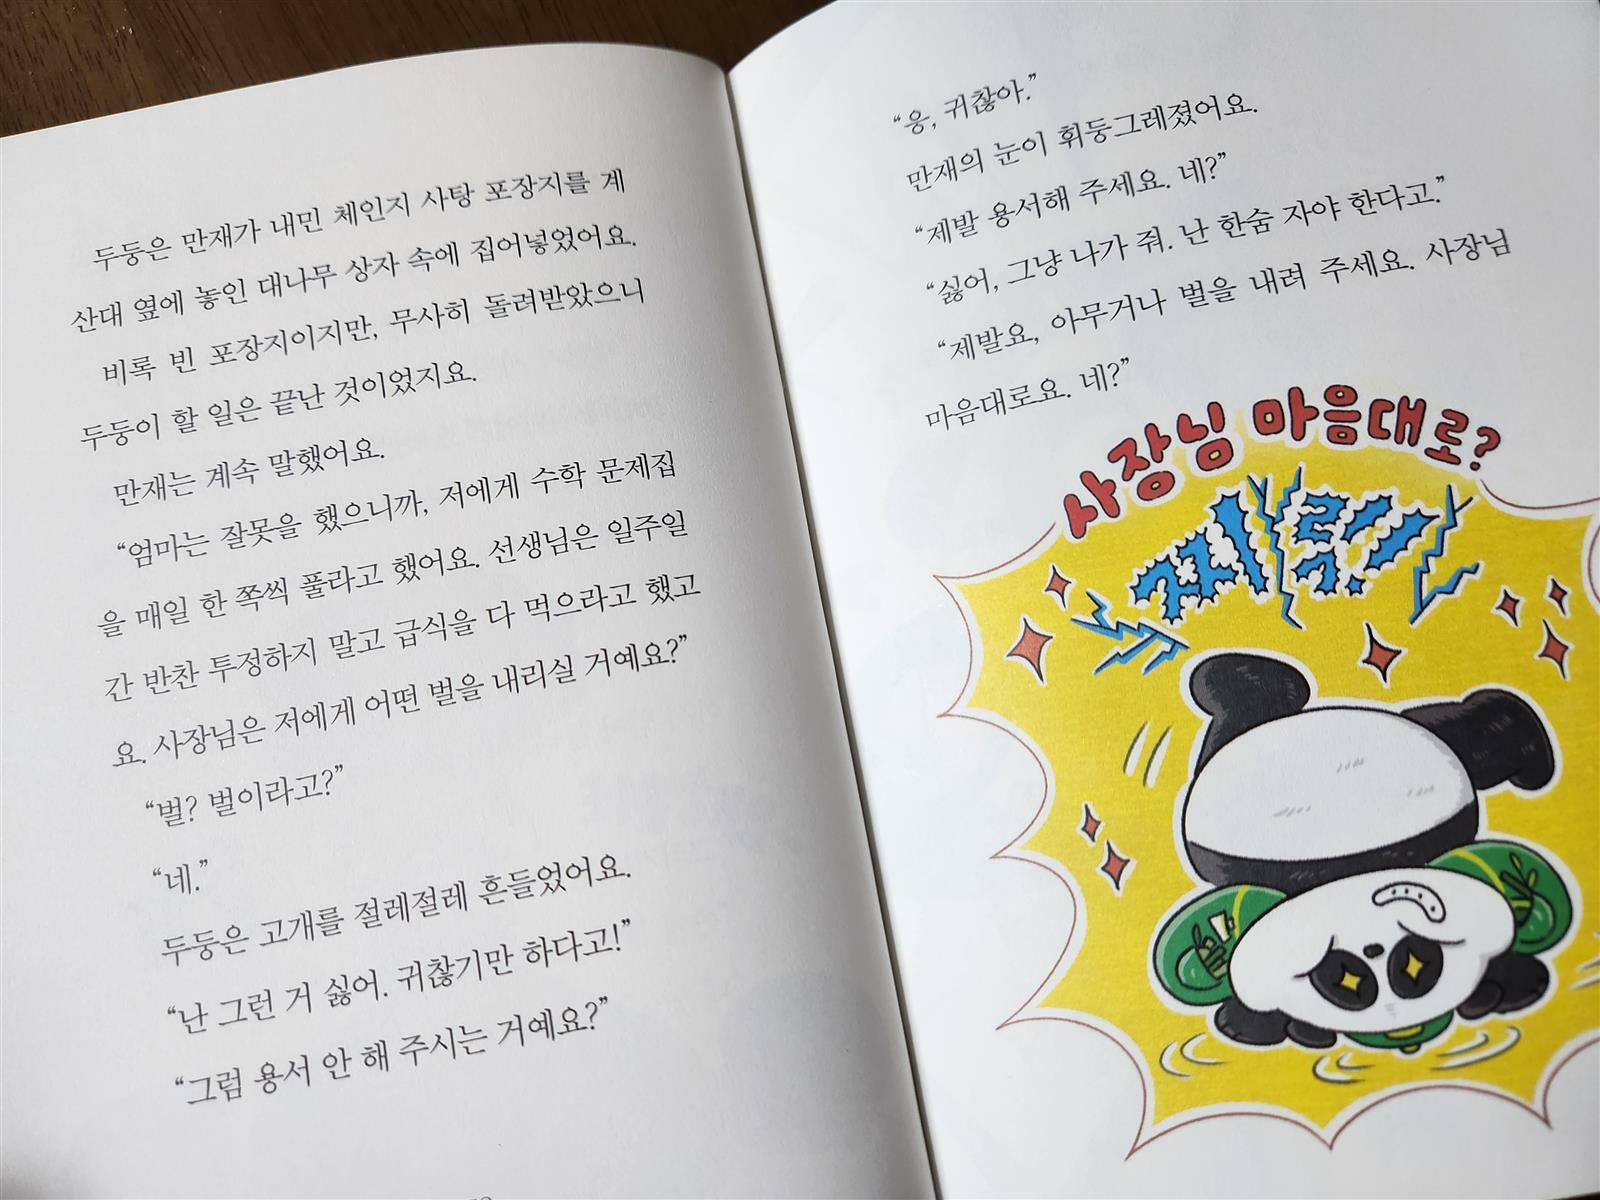 두둥은 만재가 내민 체인지 사탕 포장지를 계
산대 옆에 놓인 대나무 상자 속에 집어넣었어요.
비록 빈 포장지이지만, 무사히 돌려받았으니
두둥이 할 일은 끝난 것이었지요.
만재는 계속 말했어요.
“엄마는 잘못을 했으니까, 저에게 수학 문제집
을 매일 한 쪽씩 풀라고 했어요. 선생님은 일주일
간 반찬 투정하지 말고 급식을 다 먹으라고 했고
요. 사장님은 저에게 어떤 벌을 내리실 거예요?”
“벌? 벌이라고?”
“네.”
두둥은 고개를 절레절레 흔들었어요.
“난 그런 거 싫어. 귀찮기만 하다고!”
“그럼 용서 안 해 주시는 거예요?”
“응, 귀찮아.”
만재의 눈이 휘둥그레졌어요.
“제발 용서해 주세요. 네?”
“싫어, 그냥 나가 줘. 난 한숨 자야 한다고.”
“제발요, 아무거나 벌을 내려 주세요. 사장님
마음대로요. 네?”
사장님 마음대로?
찌릿!